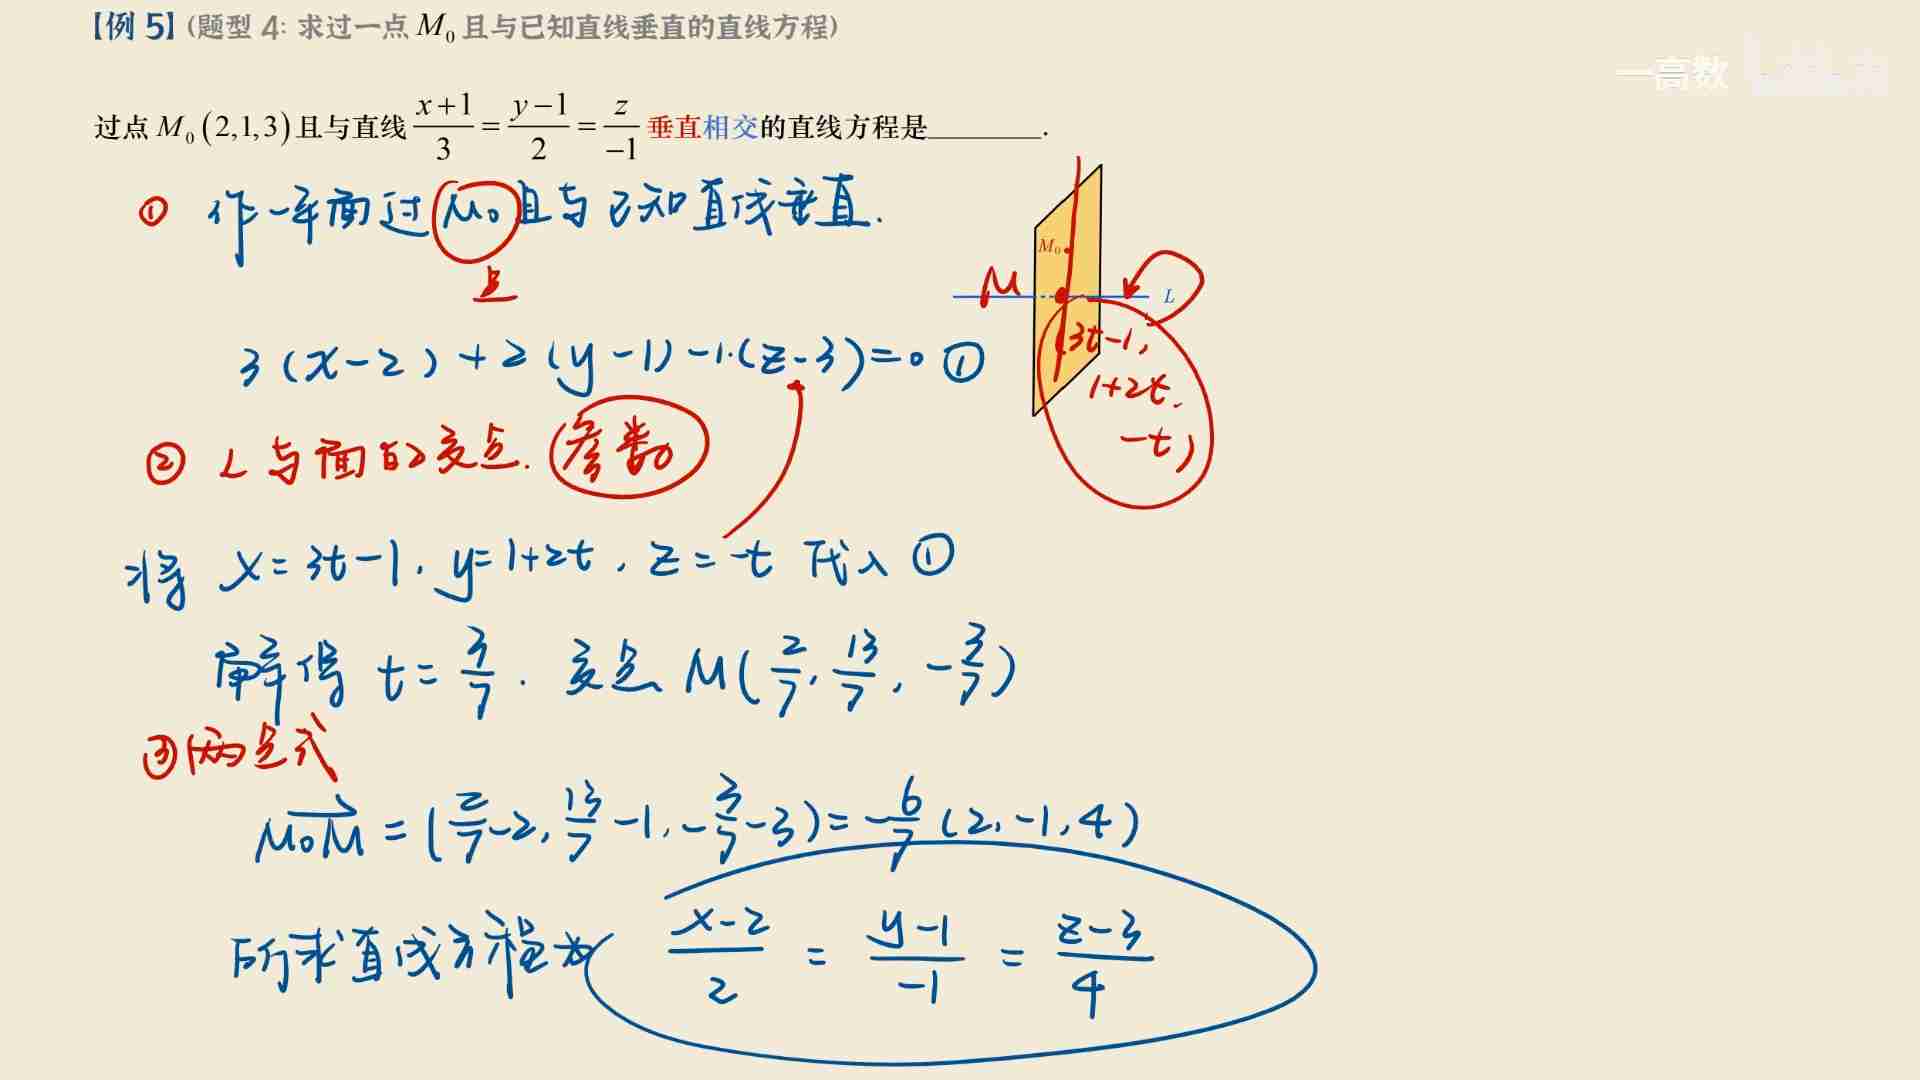 【例 5】(题型 4: 求过一点 M₀ 且与已知直线垂直的直线方程)
一高数
过点 M₀ (2,1,3) 且与直线 (x+1)/3 = (y−1)/2 = z/−1 垂直相交的直线方程是________.
① 作一平面过 M₀ 且与已知直线垂直.
点
M₀
M
L
3(x−2)+2(y−1)−1·(z−3)=0 ①
(3t−1,
1+2t,
−t)
② L与面的交点. 参数
将 x=3t−1, y=1+2t, z=−t 代入 ①
解得 t=3/7. 交点 M(2/7, 13/7, −3/7)
③ 两点式
M₀M = (2/7−2, 13/7−1, −3/7−3) = −6/7 (2,−1,4)
所求直线方程为 (x−2)/2 = (y−1)/−1 = (z−3)/4